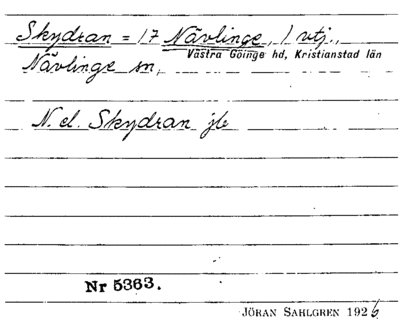 Skydran = 17 Nävlinge, 1 vtj.,
Västra Göinge hd, Kristianstad län
Nävlinge sn,
N. el. Skydran jb
Nr 5363.
JÖRAN SAHLGREN 1926